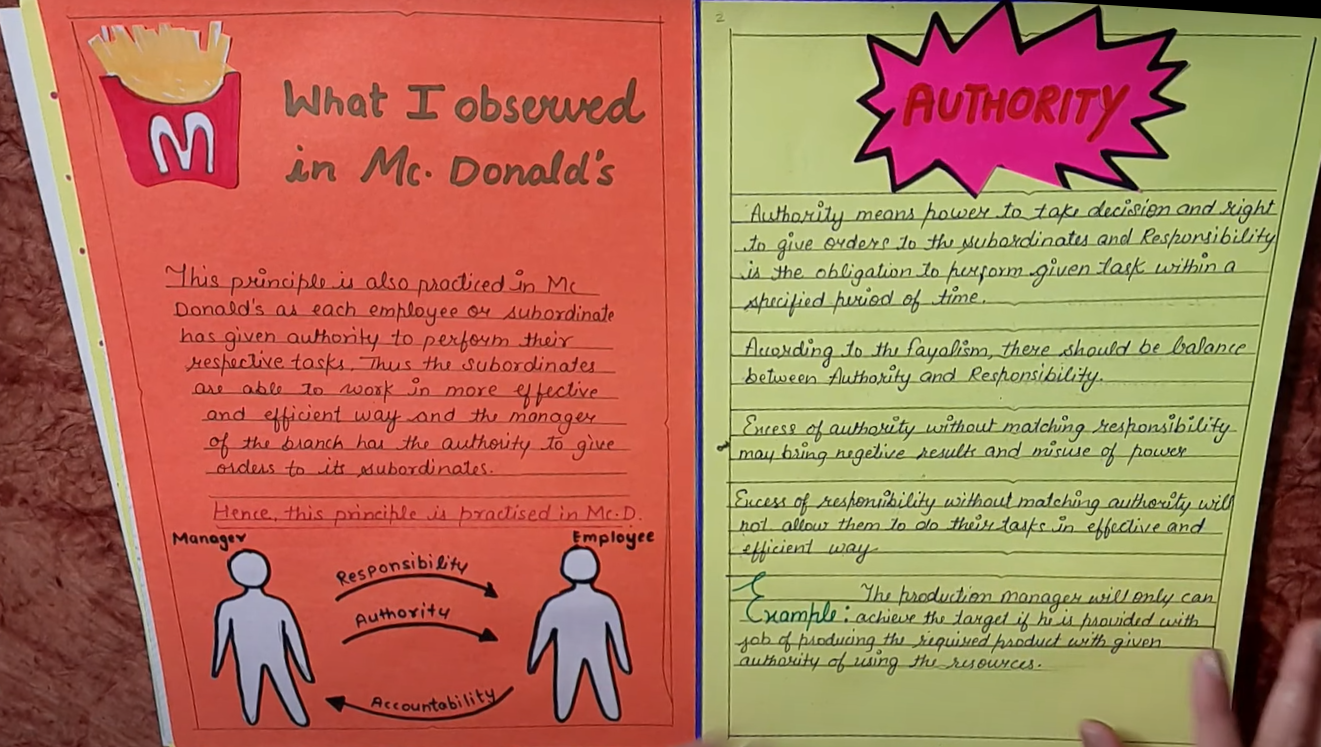 M
What I observed
in Mc. Donald's
This principle is also practiced in Mc
Donald's as each employee or subordinate
has given authority to perform their
respective tasks. Thus the subordinates
are able to work in more effective
and efficient way and the manager
of the branch has the authority to give
orders to its subordinates.
Hence, this principle is practised in Mc.D.
Manager
Employee
Responsibility
Authority
Accountability
2
AUTHORITY
Authority means power to take decision and right
to give orders to the subordinates and Responsibility
is the obligation to perform given task within a
specified period of time.
According to the fayolism, there should be balance
between Authority and Responsibility.
Excess of authority without matching responsibility
may bring negetive results and misuse of power
Excess of responsibility without matching authority will
not allow them to do their tasks in effective and
efficient way
Example: The production manager will only can
achieve the target if he is provided with
job of producing the required product with given
authority of using the resources.